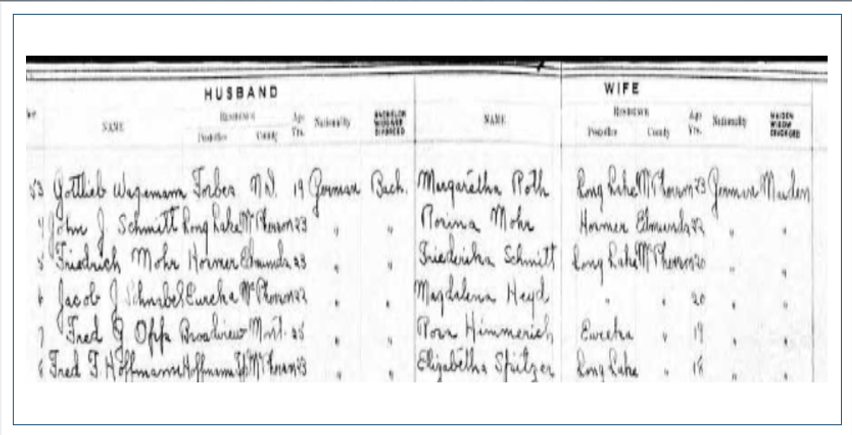 HUSBAND WIFE
NAME RESIDENCE Age Yrs. Nationality BACHELOR WIDOWER DIVORCED NAME RESIDENCE Age Yrs. Nationality MAIDEN WIDOW DIVORCED
Postoffice County Postoffice County
53 Gottlieb Wagemann Forbes N.D. 19 German Bach. Margaretha Roth Long Lake McPherson 23 German Maiden
4 John J. Schmitt Long Lake McPherson 23 " " Rosina Mohr Hosmer Edmunds 22 " "
5 Friedrich Mohr Hosmer Edmunds 23 " " Friederika Schmitt Long Lake McPherson 20 " "
6 Jacob J Schnabel Eureka McPherson 22 " " Magdalena Heyd " " 20 " "
7 Fred G Opp Broadview Mont. 25 " " Rosa Himmerich Eureka " 19 " "
8 Fred F. Hoffmann Hoffmann McPherson 23 " " Elizabetha Spitzer Long Lake " 18 " "